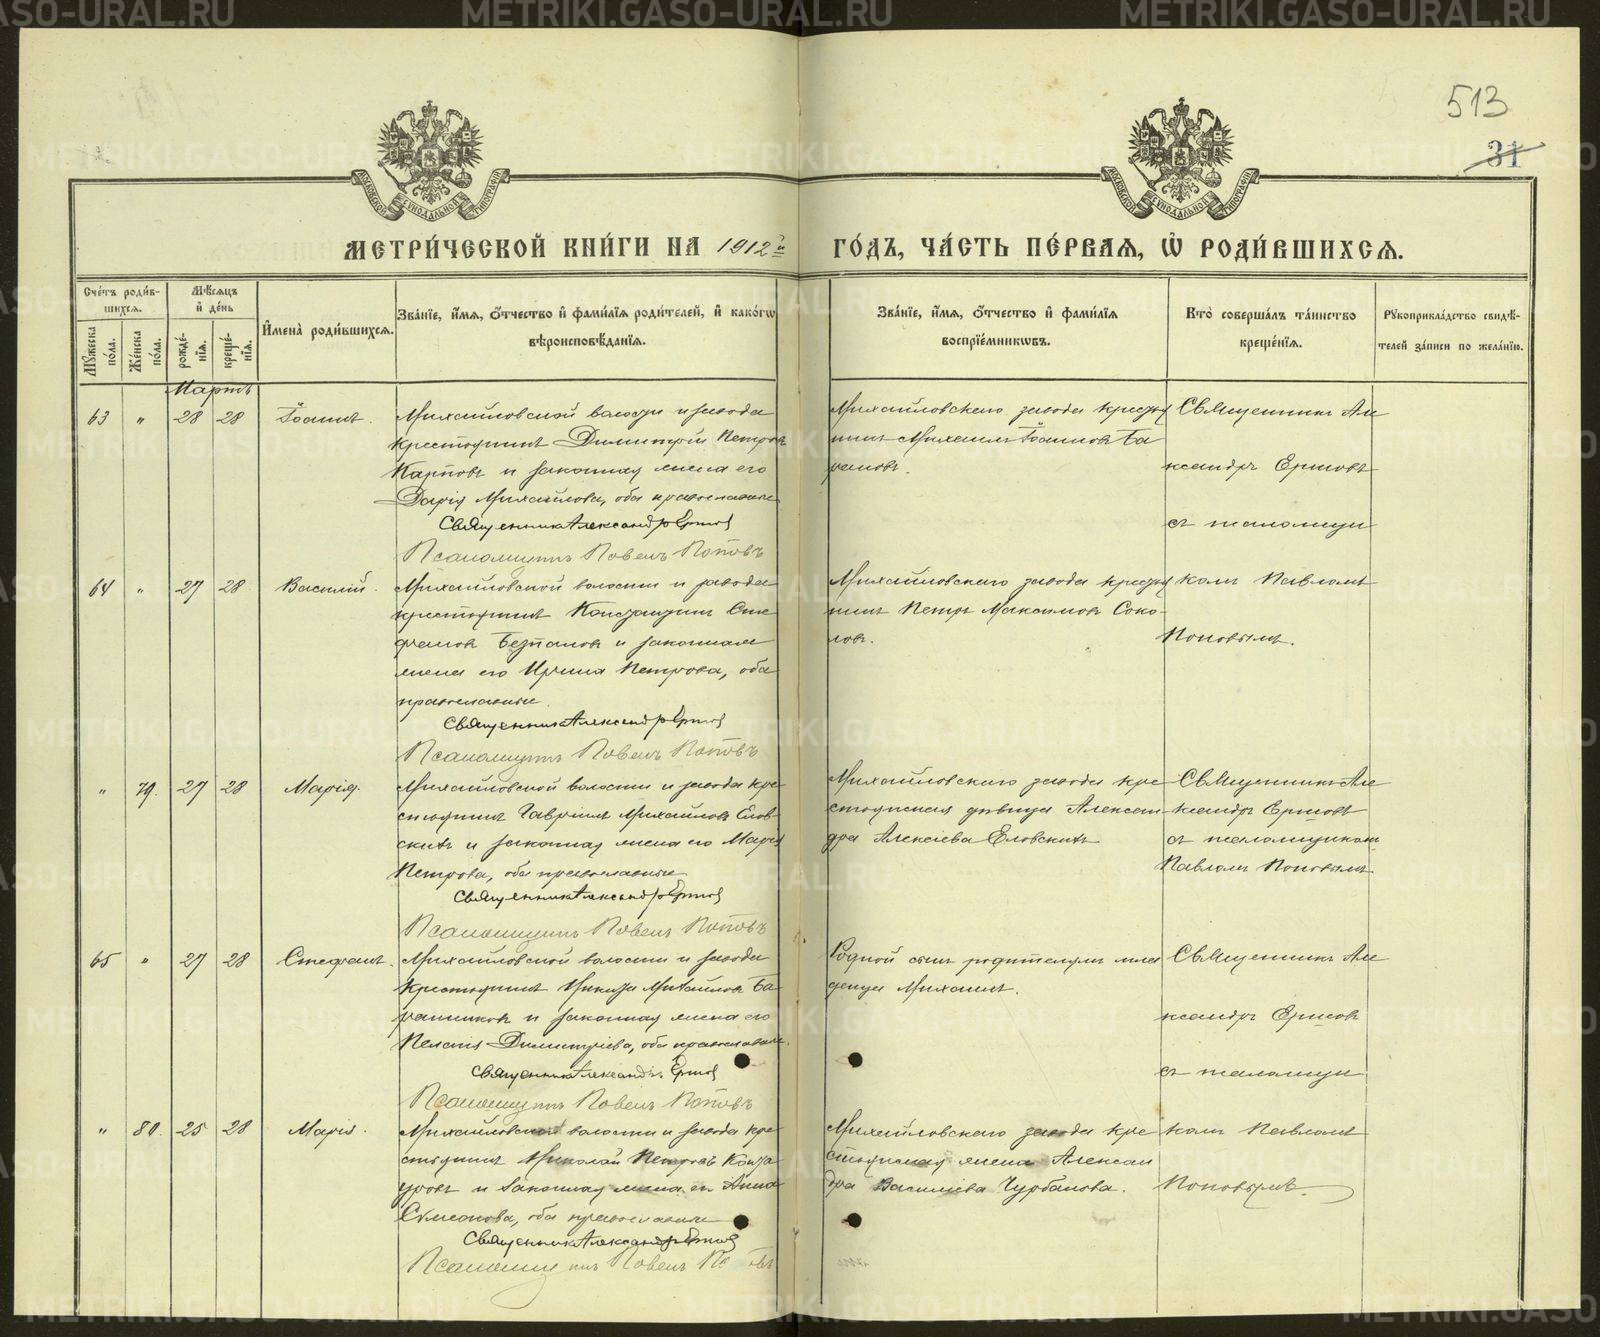 513
31
МЕТРИ́ЧЕСКОЙ КНИ́ГИ НА 1912й ГО́ДЪ, ЧА́СТЬ ПЕ́РВАЯ, Ѡ҆ РОДИ́ВШИХСЯ.
Сче́тъ роди́в-
шихся.
Мꙋжеска пола.
Же́нска по́ла.
Мѣсяцъ
и҆ де́нь
рожде́-
нїя.
креще́-
нїя.
И҆мена̀ роди́вшихся.
Зва́нїе, и҆́мя, ѻ҆́тчество и҆ фами́лїя роди́телей, и҆ како́гѡ
вѣроисповѣ́данїя.
Зва́нїе, и҆́мя, ѻ҆́тчество и҆ фами́лїя
воспрїе́мникѡвъ.
Кто̀ соверша́лъ та́инство
креще́нїя.
Рꙋкоприкла́дство свидѣ́-
телей за́писи по жела́нїю.
Мартъ
63 " 28 28 Іоаннъ.
Михайловской волости и завода
крестьянинъ Димитрій Петровъ
Карповъ и законная жена его
Дарія Михайлова, оба православные
Священникъ Александръ Ершовъ
Псаломщикъ Павелъ Поповъ
Михайловскаго завода крестья
нинъ Михаилъ Іоанновъ Ба
рановъ.
Священникъ Але
ксандръ Ершовъ
съ псаломщи
64 " 27 28 Василій.
Михайловской волости и завода
крестьянинъ Констанътинъ Сте
фановъ Безпаловъ и законная
жена его Ирина Петрова, оба
православные.
Священникъ Александръ Ершовъ
Псаломщикъ Павелъ Поповъ
Михайловскаго завода крестья
нинъ Петръ Максимовъ Соко-
ловъ.
комъ Павломъ
Поповымъ.
" 79. 27 28 Марія.
Михайловской волости и завода кре
стьянинъ Гавріилъ Михайловъ Елов-
скихъ и законная жена его Марія
Петрова, оба православные
Священникъ Александръ Ершовъ
Псаломщикъ Павелъ Поповъ
Михайловскаго завода кре
стьянская дѣвица Алексан
дра Алексіева Еловскихъ
Священникъ Але
ксандръ Ершовъ
съ псаломщикомъ
Павломъ Поповымъ
65 " 27 28 Стефанъ.
Михайловской волости и завода
крестьянинъ Никита Михайловъ Ба
ранниковъ и законная жена его
Пелагія Димитріева, оба православные.
Священникъ Александръ Ершовъ
Псаломщикъ Павелъ Поповъ
Родной сынъ родителямъ мла
денца Михаилъ.
Священникъ Але
ксандръ Ершовъ
съ псаломщи
" 80. 25 28 Марія.
Михайловской волости и завода кре
стьянинъ Николай Петровъ
и законная жена его Анна
Симеонова, оба православные
Священникъ Александръ Ершовъ
Псаломщикъ Павелъ По овъ
Михайловскаго завода кре
стьянская жена Алексан
дра Василіева Чурбанова.
комъ Павломъ
Поповымъ.